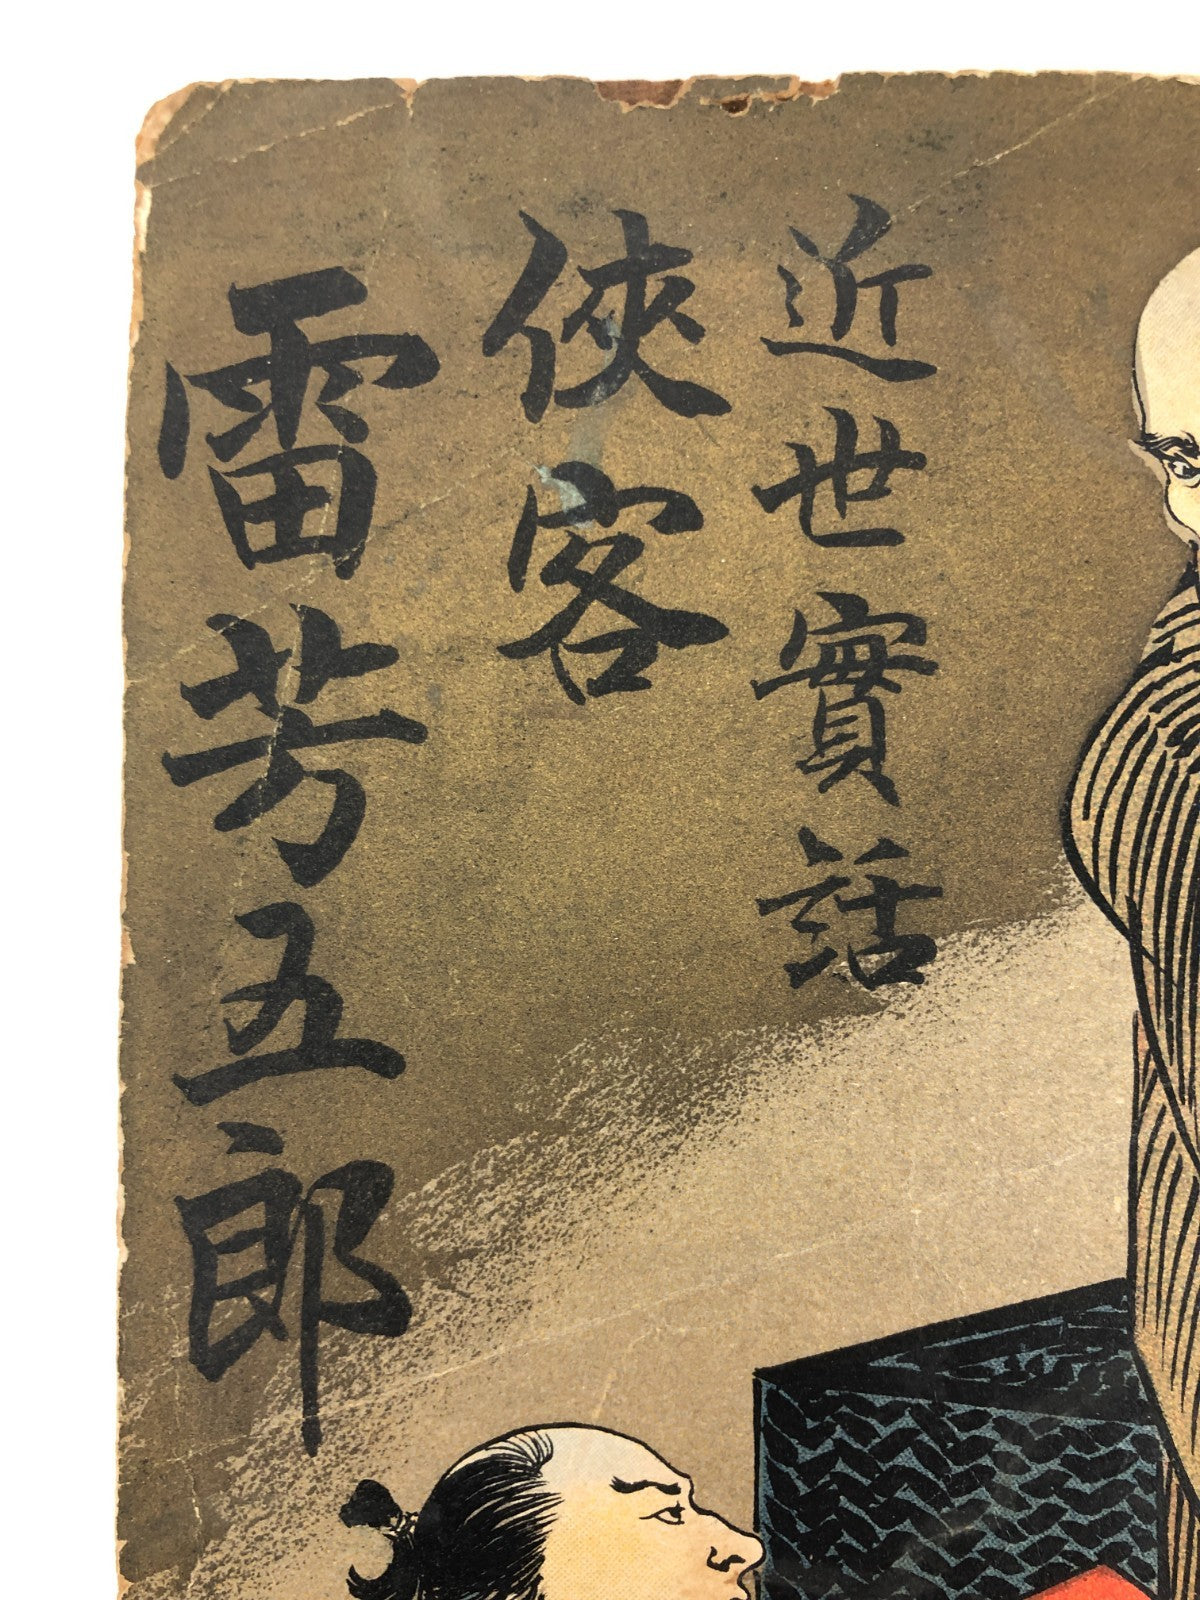 近世實話
俠客
雷芳五郎